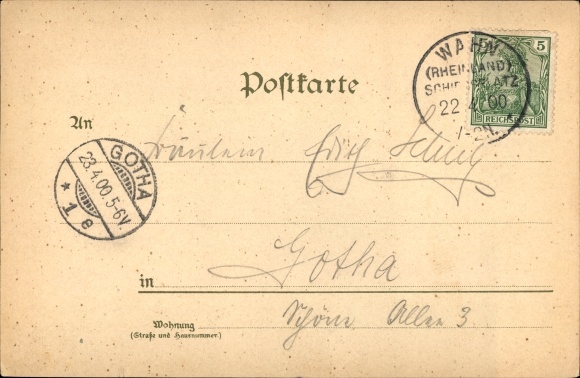 WAHN
(RHEINLAND)
SCHIESSPLATZ
22 4 00
1-2N.
5
REICHSPOST
Postkarte
An
Fräulein Edith
GOTHA
23.4.00.5-6V.
* 1 e
Gotha
in
Schöne Allee 3
Wohnung
(Straße und Hausnummer)